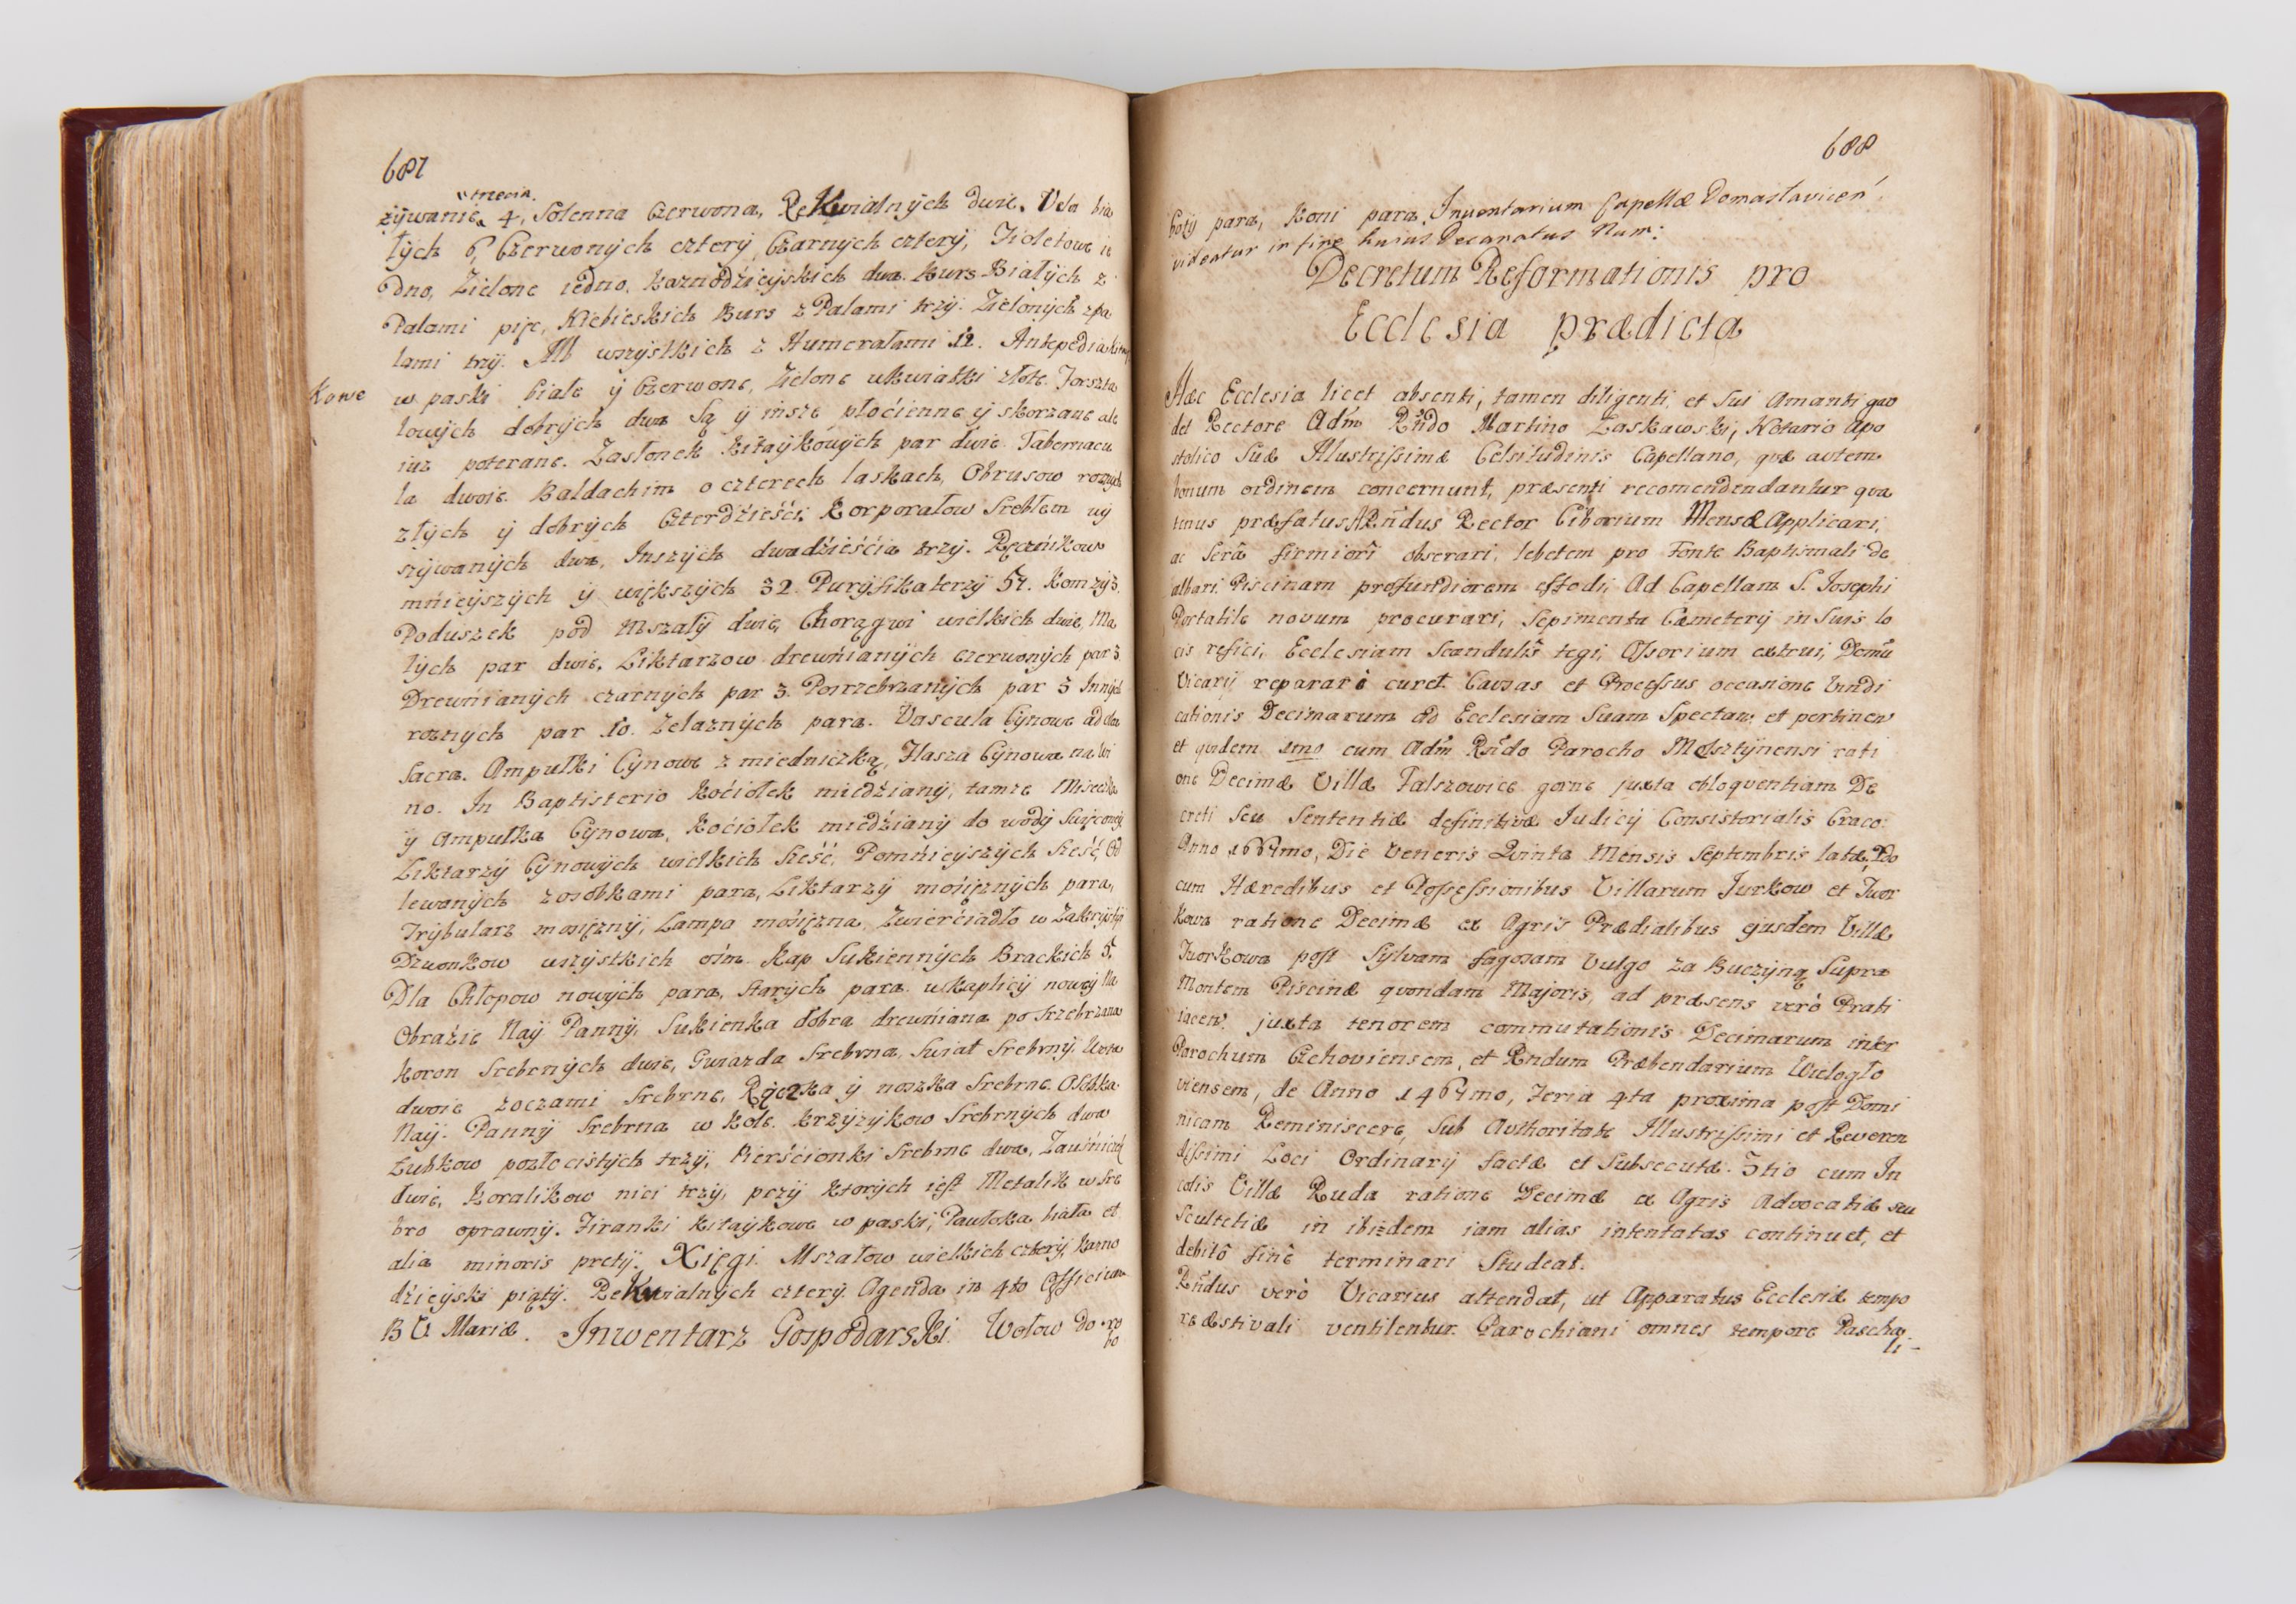 687
trzecia.
żÿwanie 4, Solenna Czerwona, Rekwialnÿch dwie. Vela bia
łÿch 6, Czerwonÿch czterÿ, Czarnÿch czterÿ, Fioletowe ie
dno, Zielone iedno. Kaznodźieÿskich dwa. Burs Białÿch z
Palami pięc, Niebieskich Burs z Palami trzÿ. Zielonÿch z pa
lami trzÿ. Alb wszÿstkich z Humerałami 12. Antepedia
Kowe w paski białe ÿ Czerwone, Zielone w kwiatki złote. Forszta
lowÿch dobrÿch dwa Są ÿ insze płoćienne ÿ skorzane ale
iuz poterane. Zasłonek kitaÿkowÿch par dwie. Tabernacu
la dwoie. Baldachim o czterech laskach, Obrusow roznÿch
złÿch ÿ dobrÿch Czterdźieśći. Korporałow Srebłem wÿ
szÿwanÿch dwa, Inszÿch dwadźieśćia trzÿ. Ręcznikow
mńieÿszÿch ÿ większÿch 32. Purÿfikaterzÿ 57. Komzÿ 3.
Poduszek pod Mszałÿ dwie, Chorągwi wielkich dwie, Ma
łÿch par dwie. Liktarzow drewńianÿch czerwonÿch par 3
Drewńianÿch czarnÿch par 3. Posrzebrzanÿch par 3 Innÿch
roznÿch par 10. Zelaznÿch para. Vascula Cÿnowe ad olea
Sacra. Ampułki Cÿnowe z miedniczką, Flasza Cÿnowa na Wi
no. In Baptisterio Koćiołek miedźianÿ, tamze Miseczka
ÿ Ampułka Cÿnowa, Koćiołek miedźianÿ do wodÿ Swięconeÿ
Liktarzÿ Cÿnowÿch wielkich Sześć, Pomńieÿszÿch Sześć, Od
lewanÿch z osobkami para, Liktarzÿ mośięznÿch para,
Trÿbularz mosięznÿ, Lampa mośięzna, Zwierćiadło w Zakrÿstÿi
Dzwonkow wszÿstkich ośm. Kap Sukiennÿch Brackich 5.
Dla Chłopow nowÿch para, starÿch para. w Kaplicÿ noweÿ Na
Obraźie Naÿ Pannÿ, Sukienka dobra drewńiana posrzebrzana
Koron Srebrnÿch dwie, Gwiazda Srebrna, Swiat Srebrnÿ. Wota
dwoie z oczami Srebrne, Rączka ÿ noszka Srebrne. Osobka
Naÿ: Pannÿ Srebrna w Kole. Krzÿzÿkow Srebrnÿch dwa
Lubkow pozłocistÿch trzÿ, Pierśćionki Srebrne dwa, Zauśnicek
dwie, Koralikow nici trzÿ, przÿ ktorÿch iest Metalik w Sre
bro oprawnÿ. Firanki kitaÿkowe w paski, Pawłoka biała et
alia minoris pretÿ. Xięgi. Mszałow wielkich czterÿ, Kazno
dźieÿski piątÿ. Rekwialnÿch czterÿ. Agenda in 4to Officium
B V Mariæ. Inwentarz Gospodarski. Wołow do ro
bo
688
botÿ para, Koni para. Inventarium Capellæ Domaslavicen'
videatur in fine huius Decanatus Num:
Decretum Reformationis pro
Ecclesia prædicta
Hæc Ecclesia licet absenti, tamen diligenti, et Sui Amanti gau
det Rectore Adm̃ Rñdo Martino Laskawski, Notario Apo
stolico Suæ Illustrissimæ Celsitudinis Capellano, quæ autem
bonum ordinem concernunt, præsenti recomendendantur qua
tenus præfatus Rñdus Rector Ciborium Mensæ Applicari,
ac Serâ firmiori obserari, lebetem pro Fonte Baptismali de
albari. Piscinam profundiorem effodi, Ad Capellam S. Josephi
Portatile novum procurari, Sepimenta Cæmeterÿ in Suis lo
cis refici, Ecclesiam Scandulis tegi, Ossorium extrui, Domũ
Vicarÿ reparari curet. Causas et Processus occasione Vindi
cationis Decimarum ad Ecclesiam Suam Spectan: et pertinen
et quidem 1mo cum Adm̃ Rñdo Parocho Melsztÿnensi rati
one Decimæ Villæ Falszowice gorne juxta obloquentiam De
creti Seu Sententiæ definitivæ Judicÿ Consistorialis Craco:
Anno 1667mo, Die Veneris Quinta Mensis Septembris latæ, 2do
cum Hæredibus et Possessionibus Villarum Jurkow et Twor
kowa ratione Decimæ ex Agris Prædialibus ejusdem Villæ
Tworkowa post Sylvam fagosam vulgo za Buczÿną Supra
Montem Piscinæ quondam Majoris, ad præsens verò Prati
iacen: juxta tenorem commutationis Decimarum inter
Parochum Czchoviensem, et Rndum Præbendarium Wielogło
viensem, de Anno 1467mo, Feria 4ta proxima post Domi
nicam Reminiscere, Sub Authoritate Illustrissimi et Reveren
dissimi Loci Ordinarÿ factæ et Subsecutæ. 3tio cum In
colis Villæ Ruda ratione Decimæ ex Agris Advocatiæ seu
Scultetiæ in ibizdem iam alias intentatas continuet, et
debitô finê terminari Studeat.
Rñdus verò Vicarius attendat, ut Apparatus Ecclesiæ tempo
re æstivali ventilentur. Parochiani omnes tempore Pascha
li-